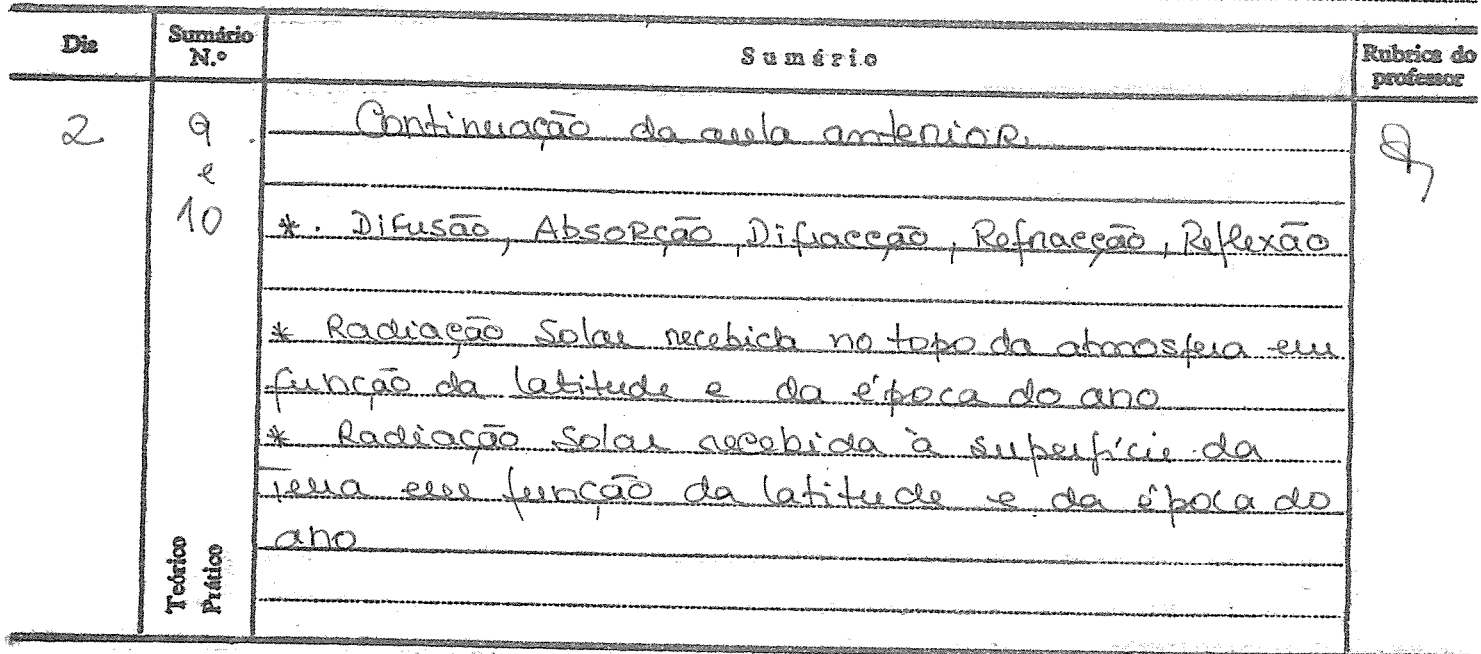 Dia
Sumário N.º
Sumário
Rubrica do professor
2
9 e 10
Continuação da aula anterior.
*. Difusão, Absorção, Difracção, Refracção, Reflexão
* Radiação Solar recebida no topo da atmosfera em
função da latitude e da época do ano
* Radiação Solar recebida à superfície da
Terra em função da latitude e da época do
ano
Teórico
Prático